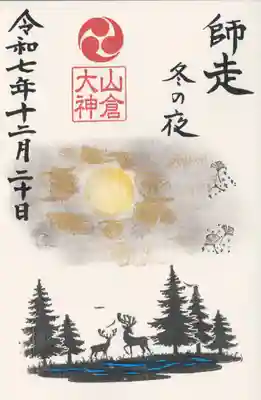 師走
冬の夜
山倉
大神
令和七年十二月二十日